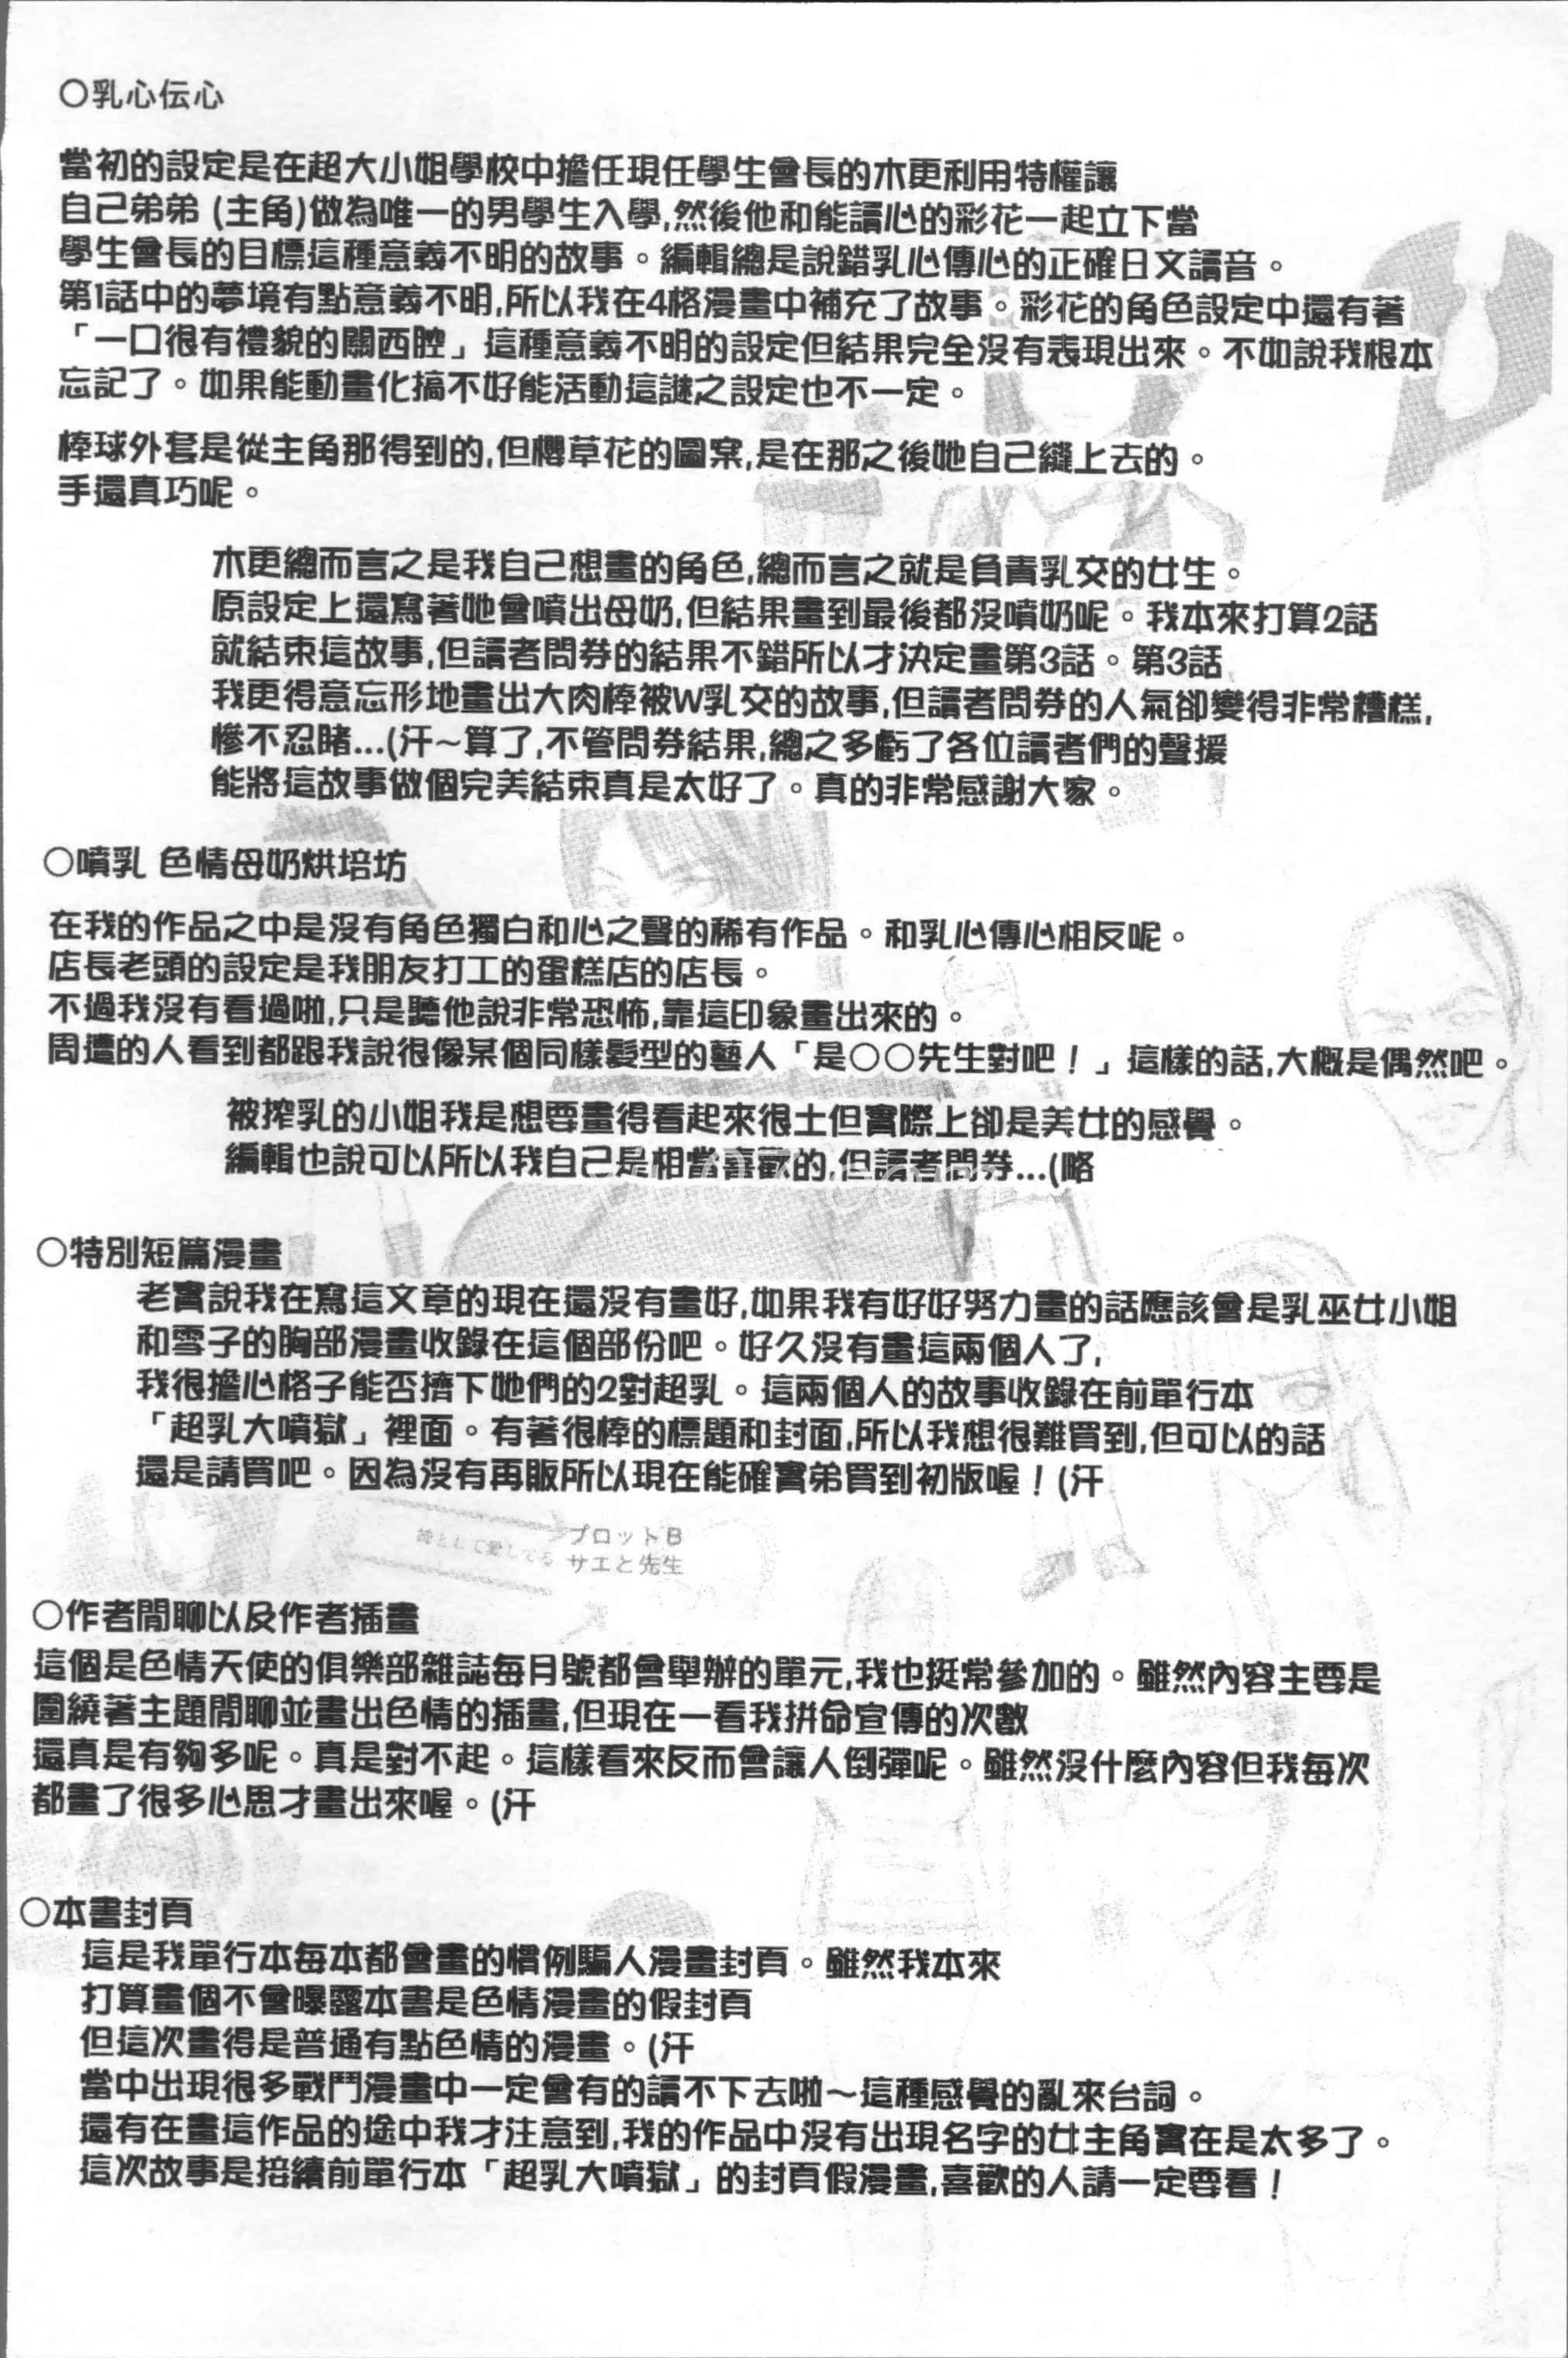 〇乳心伝心
當初的設定是在超大小姐學校中擔任現任學生會長的木更利用特權讓
自己弟弟 (主角)做為唯一的男學生入學,然後他和能讀心的彩花一起立下當
學生會長的目標這種意義不明的故事。編輯總是說錯乳心傳心的正確日文讀音。
第1話中的夢境有點意義不明,所以我在4格漫畫中補充了故事。彩花的角色設定中還有著
「一口很有禮貌的關西腔」這種意義不明的設定但結果完全沒有表現出來。不如說我根本
忘記了。如果能動畫化搞不好能活動這謎之設定也不一定。
棒球外套是從主角那得到的,但櫻草花的圖案,是在那之後她自己縫上去的。
手還真巧呢。
木更總而言之是我自己想畫的角色,總而言之就是負責乳交的女生。
原設定上還寫著她會噴出母奶,但結果畫到最後都沒噴奶呢。我本來打算2話
就結束這故事,但讀者問券的結果不錯所以才決定畫第3話。第3話
我更得意忘形地畫出大肉棒被W乳交的故事,但讀者問券的人氣卻變得非常糟糕,
慘不忍睹...(汗～算了,不管問券結果,總之多虧了各位讀者們的聲援
能將這故事做個完美結束真是太好了。真的非常感謝大家。
〇噴乳 色情母奶烘培坊
在我的作品之中是沒有角色獨白和心之聲的稀有作品。和乳心傳心相反呢。
店長老頭的設定是我朋友打工的蛋糕店的店長。
不過我沒有看過啦,只是聽他說非常恐怖,靠這印象畫出來的。
周遭的人看到都跟我說很像某個同樣髮型的藝人「是〇〇先生對吧！」這樣的話,大概是偶然吧。
被搾乳的小姐我是想要畫得看起來很土但實際上卻是美女的感覺。
編輯也說可以所以我自己是相當喜歡的,但讀者問券...(略
〇特別短篇漫畫
老實說我在寫這文章的現在還沒有畫好,如果我有好好努力畫的話應該會是乳巫女小姐
和雪子的胸部漫畫收錄在這個部份吧。好久沒有畫這兩個人了,
我很擔心格子能否擠下她們的2對超乳。這兩個人的故事收錄在前單行本
「超乳大噴獄」裡面。有著很棒的標題和封面,所以我想很難買到,但可以的話
還是請買吧。因為沒有再販所以現在能確實弟買到初版喔！(汗
プロットB
サエと先生
〇作者閒聊以及作者插畫
這個是色情天使的俱樂部雜誌每月號都會舉辦的單元,我也挺常參加的。雖然內容主要是
圍繞著主題閒聊並畫出色情的插畫,但現在一看我拼命宣傳的次數
還真是有夠多呢。真是對不起。這樣看來反而會讓人倒彈呢。雖然沒什麼內容但我每次
都畫了很多心思才畫出來喔。(汗
〇本書封頁
這是我單行本每本都會畫的慣例騙人漫畫封頁。雖然我本來
打算畫個不會曝露本書是色情漫畫的假封頁
但這次畫得是普通有點色情的漫畫。(汗
當中出現很多戰鬥漫畫中一定會有的讀不下去啦～這種感覺的亂來台詞。
還有在畫這作品的途中我才注意到,我的作品中沒有出現名字的女主角實在是太多了。
這次故事是接續前單行本「超乳大噴獄」的封頁假漫畫,喜歡的人請一定要看！